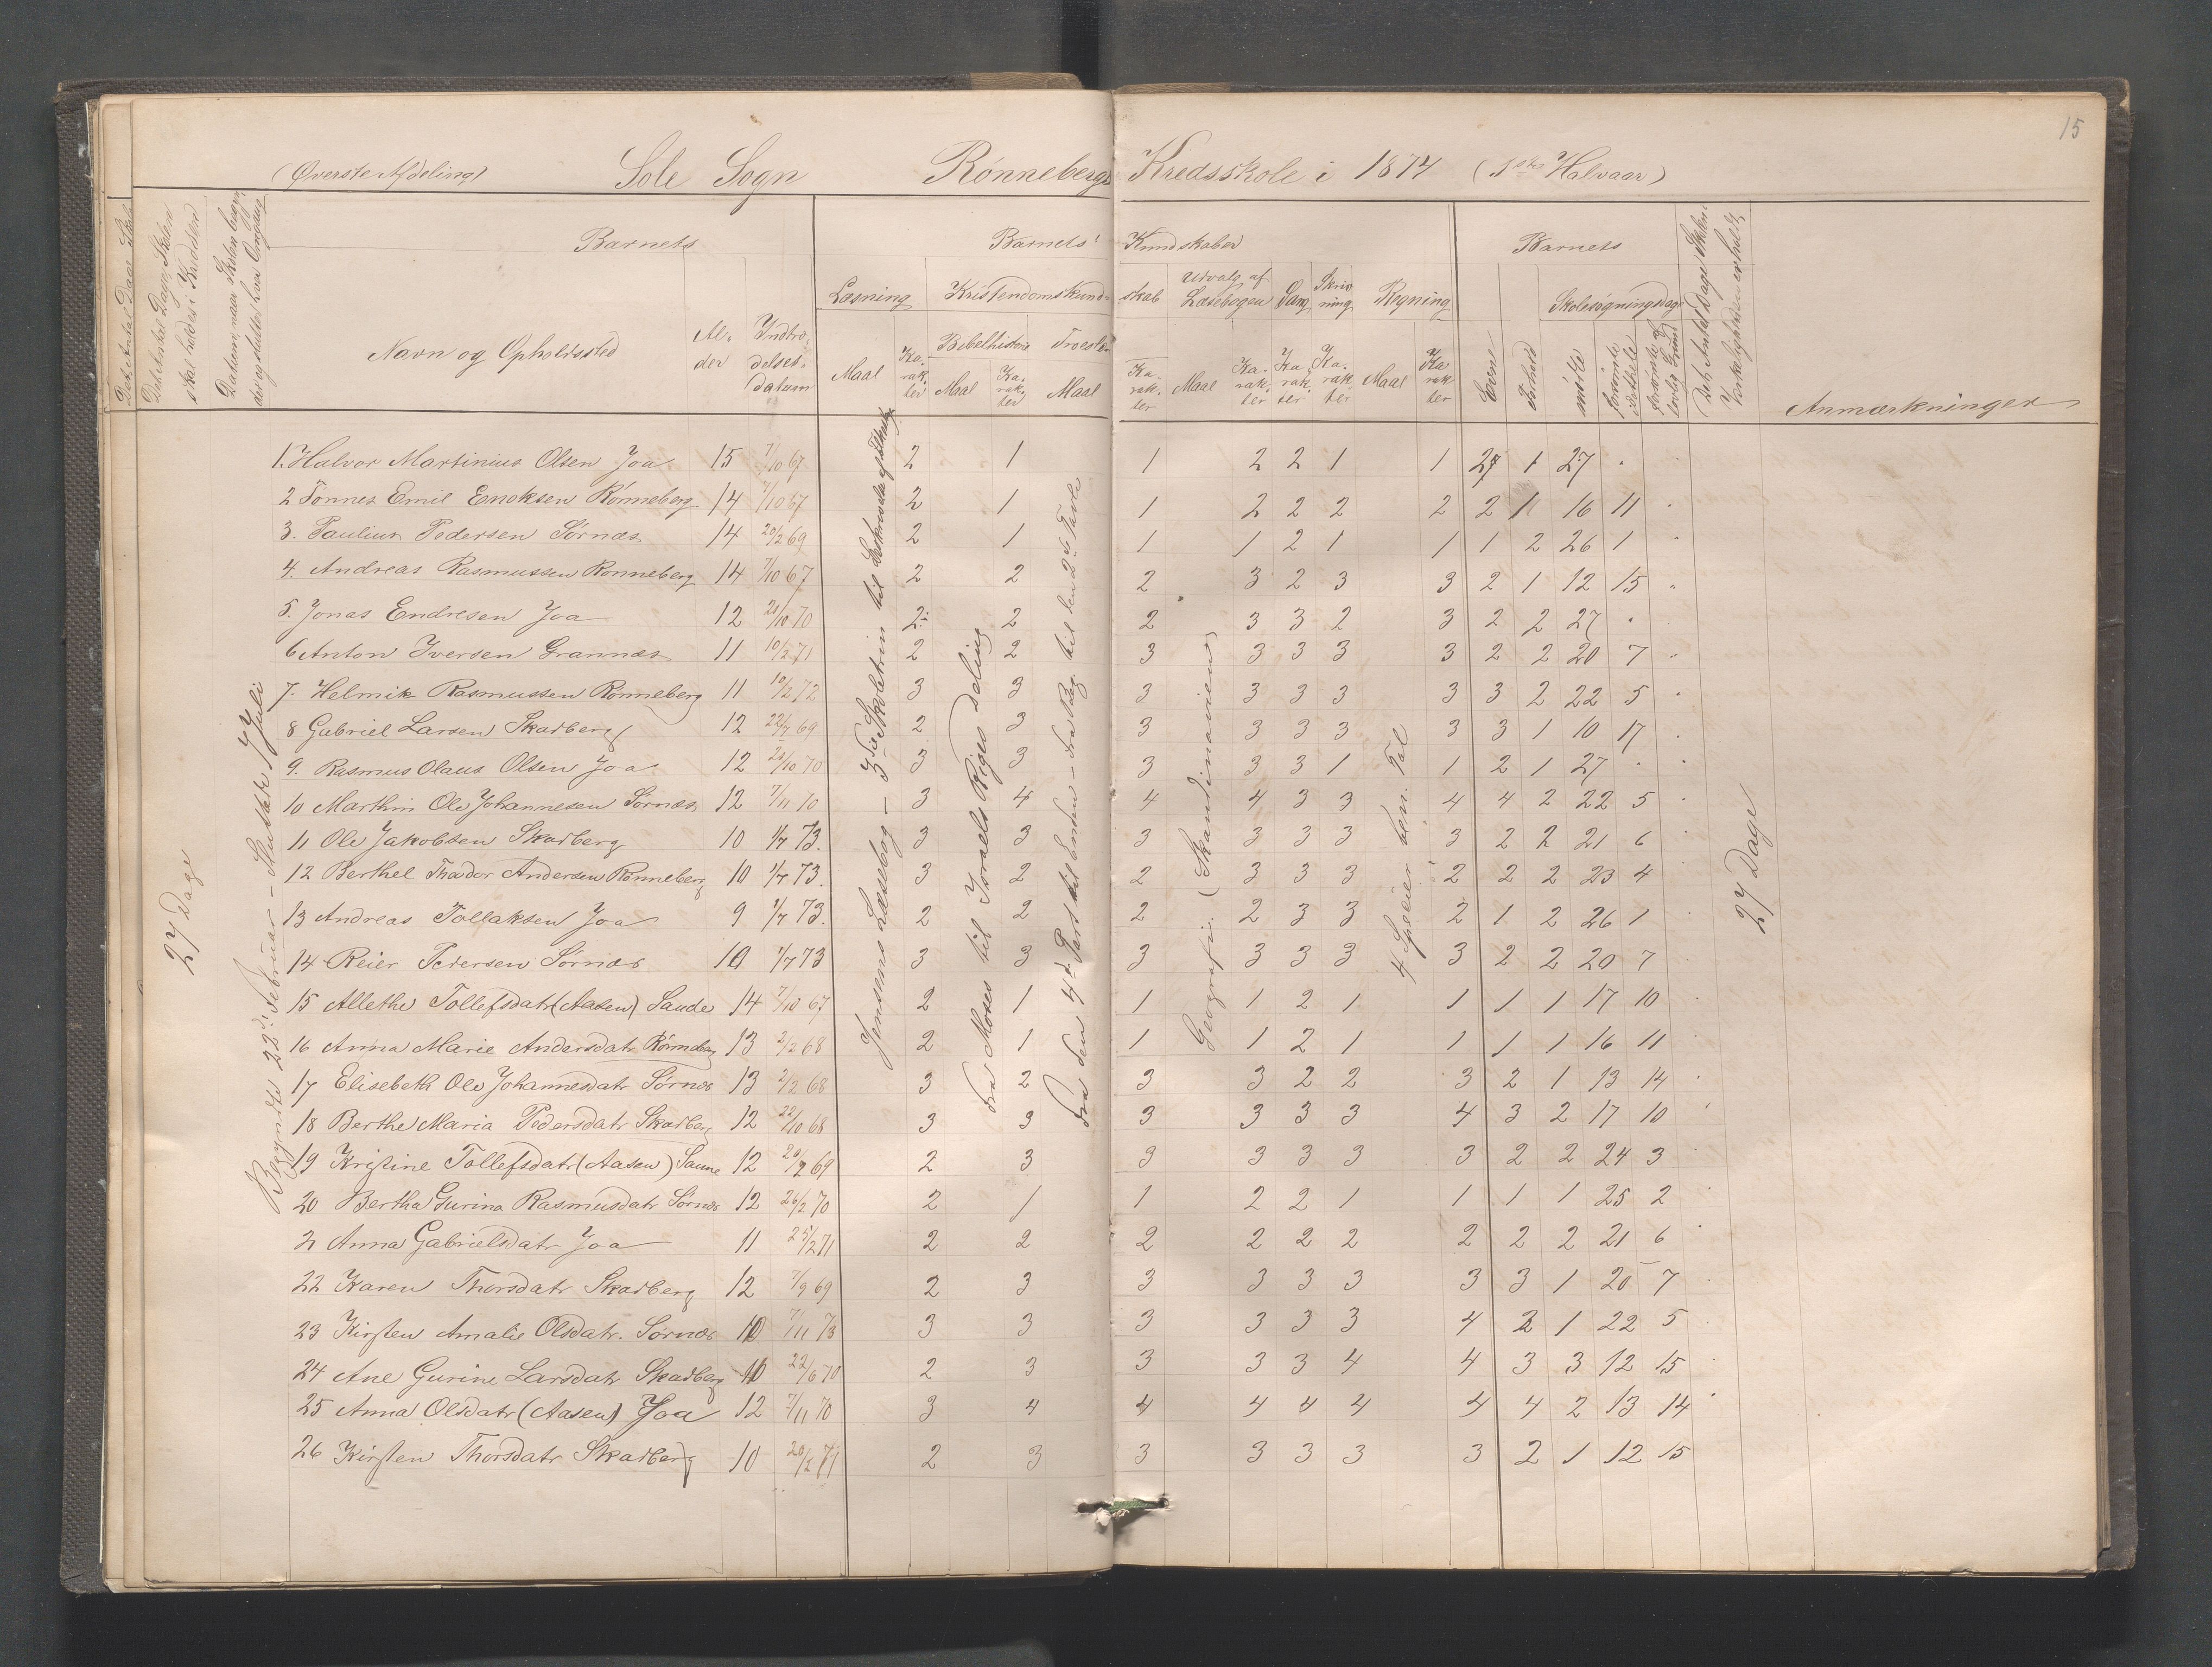 15
(Øverste Afdeling) Sole Sogn Rønnebergs Kredsskole i 1874 (1ste Halvaar)
Barnets Barnets Kundskaber Barnets
Læsning Kristendomskund- skab Udvalg af Læsebogen Sang Skrivning Regning Skolesøgningsdage
Navn og Opholdssted Alder Indtrædelsesdatum Maal Karakter Bibelhistorie Maal Karakter Troeslære Maal Karakter Maal Karakter Karakter Karakter Maal Karakter Evne Forhold mødte forsømte forsømte af lovlig Grund Det Antal Dage Skolen i Virkeligheden er holdt Anmærkninger
27 Dage
Begyndte 22d Februar - Sluttede 1 Juli
Jensens Læsebog - 3die Skoletrin til
fra Moses til Israels Riges Deling
fra den 4de Part til Enden
Geografi. (Skandinavien)
4 Speier ben. Tal
27 Dage
1. Halvor Martinius Olsen Joa 15 7/10 67 2 1 1 2 2 1 1 27 1 27 .
2 Tønnes Emil Enoksen Rønneberg 14 7/10 67 2 1 1 2 2 2 2 2 1 16 11 .
3. Paulius Pedersen Sørnæs 14 20/2 69 2 1 1 1 2 1 1 1 2 26 1 .
4. Andreas Rasmussen Rønneberg 14 7/10 67 2 2 2 3 2 3 3 2 1 12 15 .
5. Jonas Endresen Joa 12 20/10 70 2 2 2 3 3 2 3 2 2 27 .
6 Anton Iversen Grannæs 11 10/2 71 2 2 3 3 3 3 3 2 2 20 7 .
7. Helmik Rasmussen Rønneberg 11 10/2 72 3 3 3 3 3 3 3 3 2 22 5 .
8 Gabriel Larsen Skadberg 12 22/7 69 2 3 3 3 3 3 3 3 1 10 17 .
9. Rasmus Olaus Olsen Joa 12 20/10 70 3 3 3 3 3 1 1 2 1 27 . .
10 Marthin Ole Johannesen Sørnæs 12 7/11 70 3 4 4 4 3 3 4 4 2 22 5 .
11 Ole Jakobsen Skadberg 10 1/7 73. 3 3 3 3 3 3 3 2 2 21 6
12 Berthel Thador Andersen Rønneberg 10 1/7 73. 3 2 2 3 3 3 2 2 2 23 4
13 Andreas Tollaksen Joa 9 1/7 73. 2 2 2 2 3 3 2 1 2 26 1 .
14 Reier Pedersen Sørnæs 10 1/7 73 3 3 3 3 3 3 3 2 2 20 7 .
15 Allethe Tollefsdatr (Aasen) Sande 14 7/10 67 2 1 1 1 2 1 1 1 1 17 10 .
16 Anna Marie Andersdatr Rønneberg 13 2/2 68 2 1 1 1 2 1 1 1 1 16 11 .
17 Elisebeth Ole Johannesdatr Sørnæs 13 2/2 68 3 2 3 3 2 2 3 2 1 13 14 .
18 Berthe Maria Pedersdatr Skadberg 12 22/10 68 3 3 3 3 3 3 4 3 2 17 10 .
19 Kristine Tollefsdatr (Aasen) Sanne 12 20/2 69 2 3 3 3 3 3 3 2 2 24 3 .
20 Bertha Gurina Rasmusdatr Sørnæs 12 26/2 70 2 1 1 2 2 1 1 1 1 25 2 .
21 Anna Gabrielsdatr Joa 11 25/2 71 2 2 2 2 2 2 2 2 2 21 6 .
22 Karen Thorsdatr Skadberg 12 7/9 69 2 3 3 3 3 3 3 3 1 20 7 .
23 Kirsten Amalie Olsdatr. Sørnæs 10 7/11 73 3 3 3 3 3 3 4 2 1 22 5 .
24 Ane Gurine Larsdatr Skadberg 10 22/6 70 2 3 3 3 3 4 4 3 3 12 15 .
25 Anna Olsdatr (Aasen) Joa 12 7/11 70 3 4 4 4 4 4 4 4 2 13 14 .
26 Kirsten Thorsdatr Skadberg 10 20/2 71 2 3 3 3 3 3 3 2 1 12 15